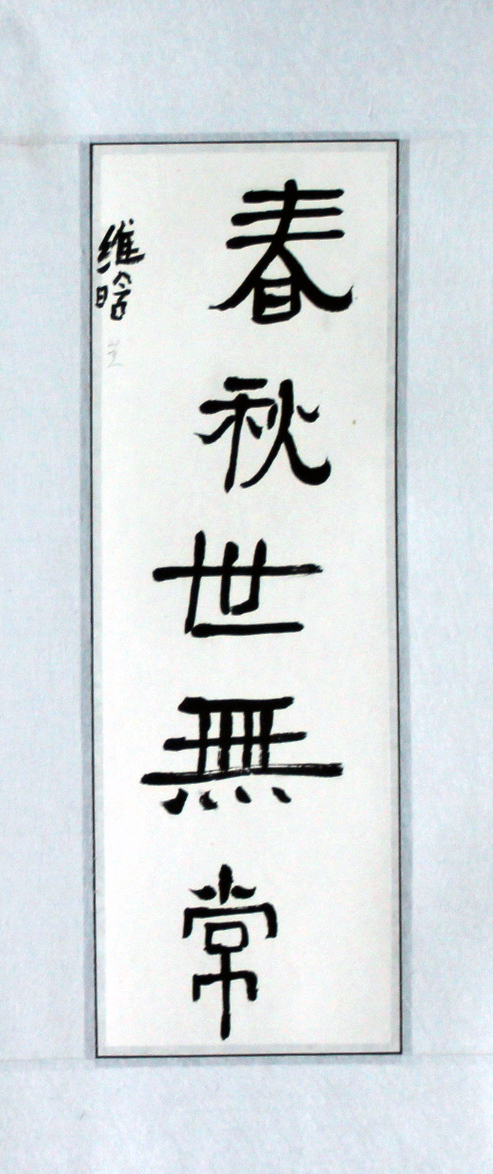 春秋世無常
維晗